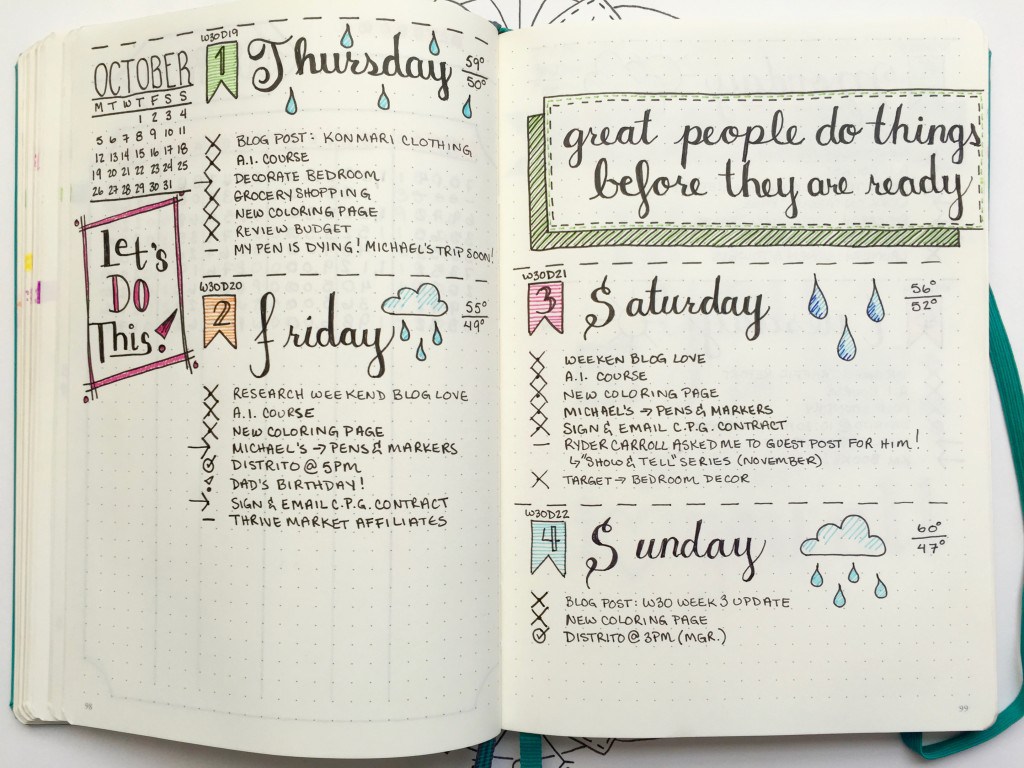 OCTOBER
M T W T F S S
1 2 3 4
5 6 7 8 9 10 11
12 13 14 15 16 17 18
19 20 21 22 23 24 25
26 27 28 29 30 31
Let's
DO
This!
W30D19
1 Thursday 59°
50°
X BLOG POST: KONMARI CLOTHING
X A.I. COURSE
X DECORATE BEDROOM
X GROCERY SHOPPING
X NEW COLORING PAGE
X REVIEW BUDGET
– MY PEN IS DYING! MICHAEL'S TRIP SOON!
W30D20
2 friday 55°
49°
X RESEARCH WEEKEND BLOG LOVE
X A.I. COURSE
X NEW COLORING PAGE
→ MICHAEL'S → PENS & MARKERS
DISTRITO @ 5PM
DAD'S BIRTHDAY!
→ SIGN & EMAIL C.P.G. CONTRACT
– THRIVE MARKET AFFILIATES
98
great people do things
before they are ready
W30D21
3 Saturday 56°
52°
X WEEKEN BLOG LOVE
X A.I. COURSE
X NEW COLORING PAGE
X MICHAEL'S → PENS & MARKERS
X SIGN & EMAIL C.P.G. CONTRACT
– RYDER CARROLL ASKED ME TO GUEST POST FOR HIM!
↳ "SHOW & TELL" SERIES (NOVEMBER)
X TARGET → BEDROOM DECOR
W30D22
4 Sunday 60°
47°
X BLOG POST: W30 WEEK 3 UPDATE
X NEW COLORING PAGE
DISTRITO @ 3PM (MGR.)
99